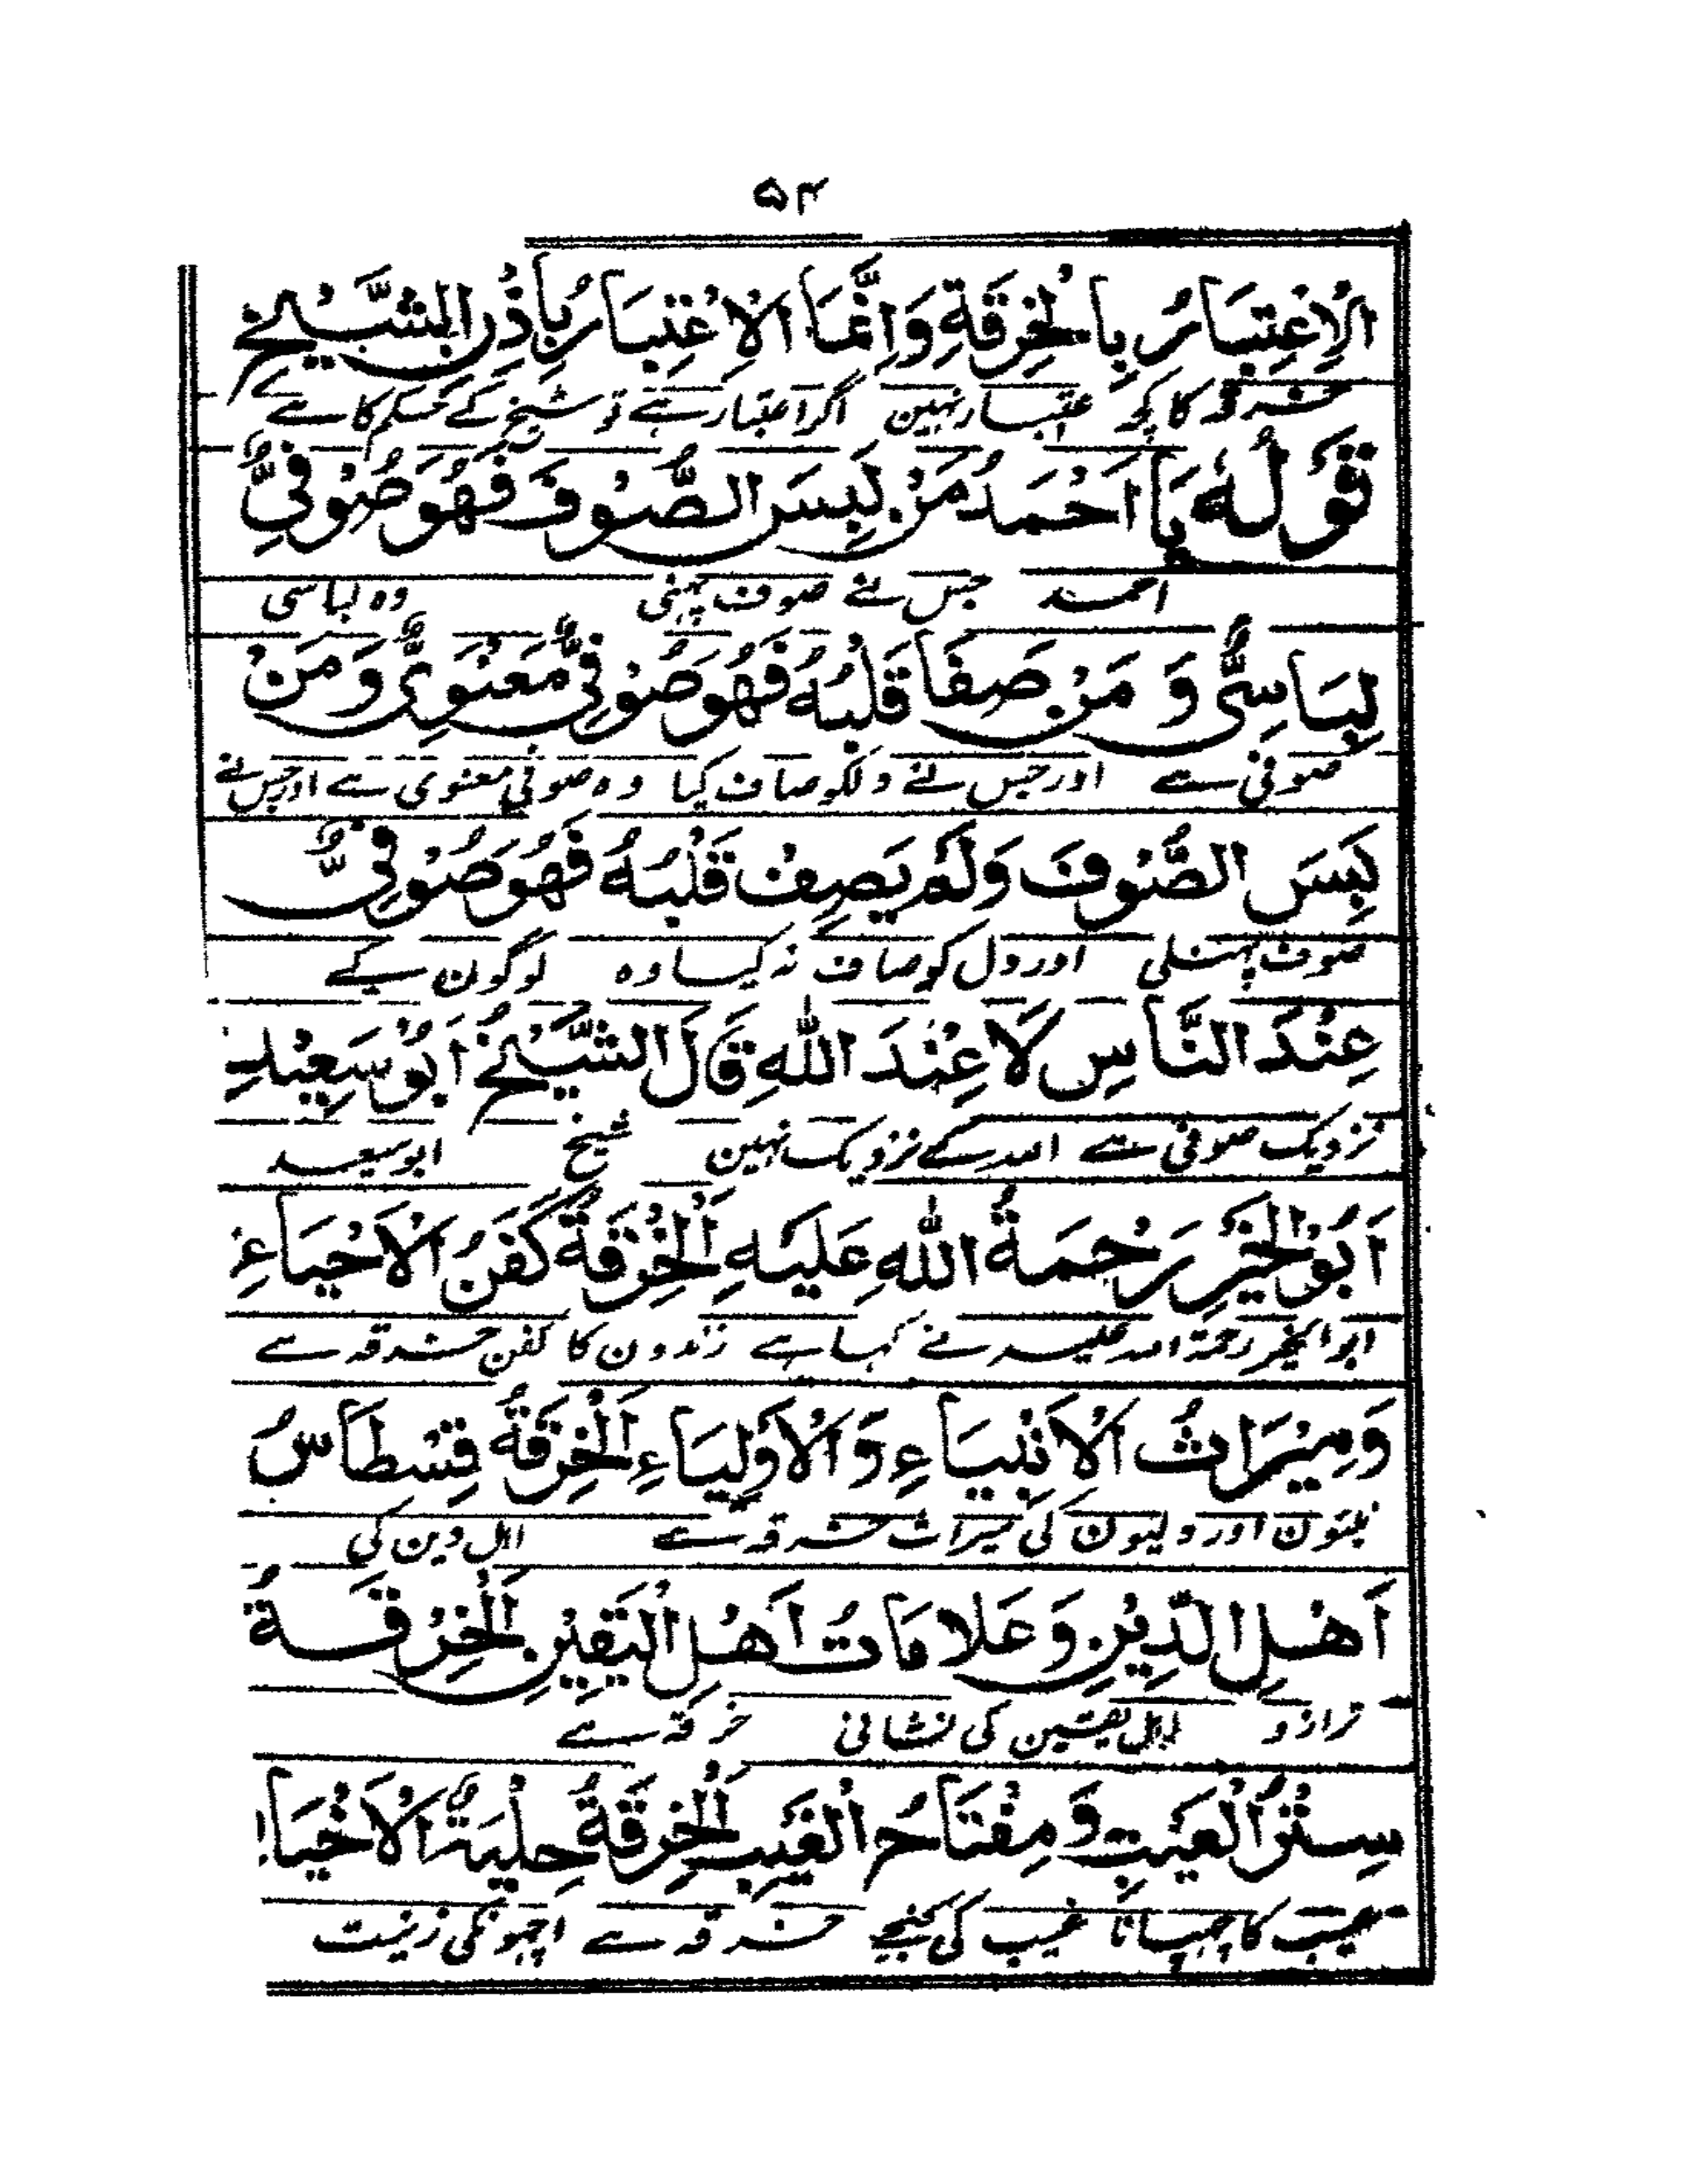 ۵۴
الْاِعْتِبَارُ بِالْخِرْقَةِ وَاِنَّمَا الْاِعْتِبَارُ بِاِذْنِ الشَّيْخِ
خرقہ کا کچھ اعتبار نہین اگر اعتبار ہے تو شیخ کے حکم کا ہے
قَوْلُهٗ يَا اَحْمَدُ مَنْ لَبِسَ الصُّوْفَ فَهُوَ صُوْفِيٌّ
احمد جس نے صوف پہنی وہ لباسی
لِبَاسِيٌّ وَ مَنْ صَفَا قَلْبُهٗ فَهُوَ صُوْفِيٌّ مَعْنَوِيٌّ وَمَنْ
صوفی ہے اور جس نے دلکو صاف کیا وہ صوفی معنوی ہے اور جس نے
لَبِسَ الصُّوْفَ وَلَمْ يَصِفْ قَلْبُهٗ فَهُوَ صُوْفِيٌّ
صوف پہنلی اور دل کو صاف نہ کیا وہ لوگون کے
عِنْدَ النَّاسِ لَا عِنْدَ اللّٰهِ قَالَ الشَّيْخُ اَبُوْ سَعِيْدِ
نزدیک صوفی ہے اللہ کے نزدیک نہین شیخ ابو سعید
اَبُوْ الْخَيْرِ رَحْمَةُ اللّٰهِ عَلَيْهِ اَلْخِرْقَةُ كَفَنُ الْاَحْيَاءِ
ابو الخیر رحمۃ اللہ علیہ نے کہا ہے زندون کا کفن خرقہ ہے
وَمِيْرَاثُ الْاَنْبِيَاءِ وَ الْاَوْلِيَاءِ اَلْخِرْقَةُ قِسْطَاسُ
نبیون اور ولیون کی میراث خرقہ ہے اہل دین کی
اَهْلِ الدِّيْنِ وَعَلَامَاتُ اَهْلِ الْيَقِيْنِ اَلْخِرْقَةُ
ترازو اہل یقین کی نشانی خرقہ ہے
سِتْرُ الْعَيْبِ وَ مِفْتَاحُ الْغَيْبِ اَلْخِرْقَةُ حِلْيَةُ الْاَخْيَا
عیب کا چھپانا غیب کی کنجی خرقہ ہے اچھونکی زینت